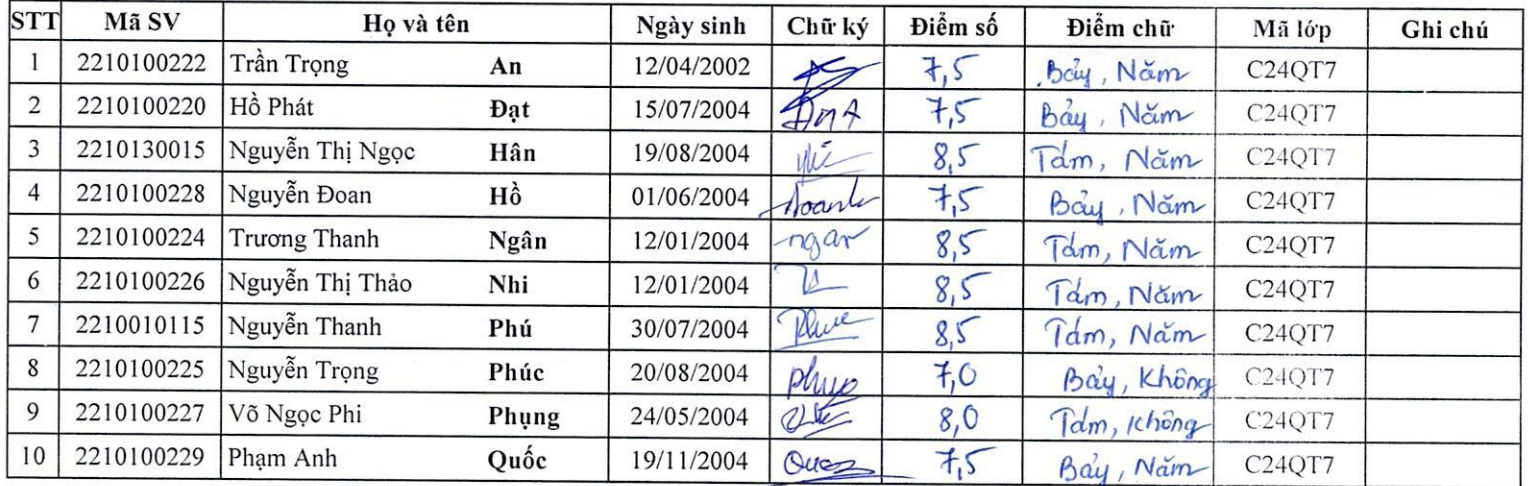 STT Mã SV Họ và tên Ngày sinh Chữ ký Điểm số Điểm chữ Mã lớp Ghi chú
1 2210100222 Trần Trọng An 12/04/2002 7,5 Bảy, Năm C24QT7
2 2210100220 Hồ Phát Đạt 15/07/2004 7,5 Bảy, Năm C24QT7
3 2210130015 Nguyễn Thị Ngọc Hân 19/08/2004 8,5 Tám, Năm C24QT7
4 2210100228 Nguyễn Đoan Hồ 01/06/2004 7,5 Bảy, Năm C24QT7
5 2210100224 Trương Thanh Ngân 12/01/2004 8,5 Tám, Năm C24QT7
6 2210100226 Nguyễn Thị Thảo Nhi 12/01/2004 8,5 Tám, Năm C24QT7
7 2210010115 Nguyễn Thanh Phú 30/07/2004 8,5 Tám, Năm C24QT7
8 2210100225 Nguyễn Trọng Phúc 20/08/2004 7,0 Bảy, Không C24QT7
9 2210100227 Võ Ngọc Phi Phụng 24/05/2004 8,0 Tám, Không C24QT7
10 2210100229 Phạm Anh Quốc 19/11/2004 7,5 Bảy, Năm C24QT7